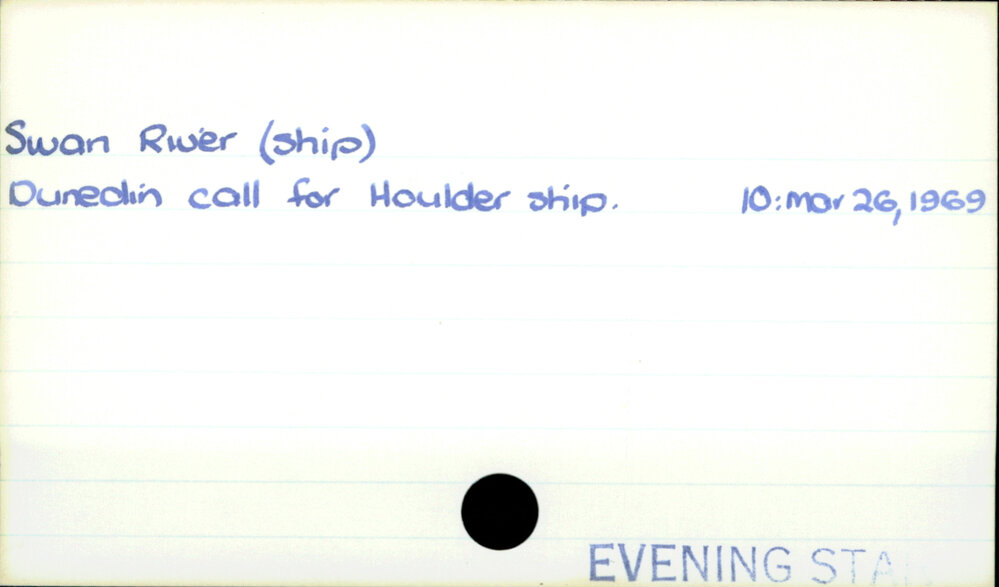 Swan River (ship)
Dunedin call for Houlder ship. 10: Mar 26, 1969
EVENING STA